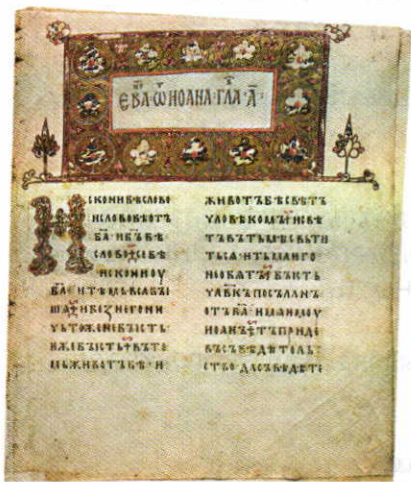 ЕВА҃ Ѿ ИОАНА· ГЛА҃ А҃·
ИСКОНИ БѢ СЛОВО
И СЛОВО БѢ ОТЪ
БА҃ · И БЪ҃ БѢ
СЛОВО · СЕ БѢ
ИСКОНИ ОУ
БА҃ · И ТѢМЬ ВСѦ БЫ
ШѦ · И БЕЗ НЕГО НИ
ЧЬТОЖЕ НЕ БЫСТЬ ·
ѤЖЕ БЫСТЬ · ВЪ ТО
МЬ ЖИВОТЪ БѢ · И
ЖИВОТЪ БѢ СВѢТЪ
ЧЛОВѢКОМЪ · И СВѢ
ТЪ ВЪ ТЬМѢ СВЬТИ
ТЬСѦ · И ТЬМА ѤГО
НЕ ОБѦТЪ · БЫСТЬ
ЧЛВ҃КЪ ПОСЪЛАНЪ
ОТЪ БА҃ · ИМѦ ѤМОУ
ИОАНЪ · ТЪ ПРИДЕ
ВЪ СЪВѢДѢТЕЛЬ
СТВО · ДА СЪВѢДѢТЕ